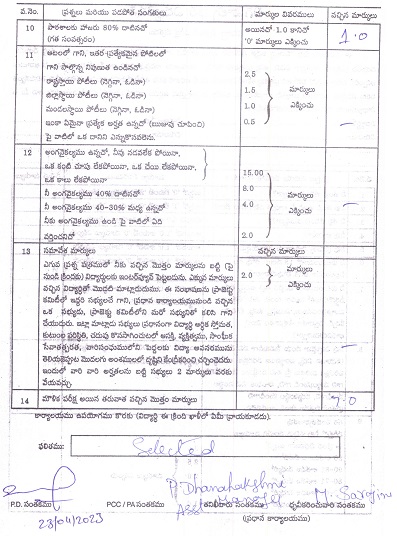 వ.నెం. ప్రశ్నలు మరియు పదపోత వంగతులు మార్కుల వివరములు వచ్చిన మార్కులు
10 పాఠశాలకు హాజరు 80% దాటినచో (గత సంవత్సరం) అయినచో 1.0 కానిచో '0' మార్కులు ఎక్కించు 1.0
11 ఆటలలో గాని, ఇతర ప్రత్యేకమైన పోటీలలో
గాని పాల్గొన్న నిపుణుత ఉండినచో 2.5
రాష్ట్రస్థాయి పోటీలు (నెగ్గినా, ఓడినా) 1.5 మార్కులు
జిల్లాస్థాయి పోటీలు (నెగ్గినా, ఓడినా) 1.0 ఎక్కించు
మండలస్థాయి పోటీలు (నెగ్గినా, ఓడినా) 0.5
ఇంకా ఏమైనా ప్రత్యేక అర్హత ఉన్నచో (ఋజువు చూపించి)
పై వాటిలో ఒక దానిని ఎన్నుకొనవలెను.
12 అంగవైకల్యము ఉన్నచో, నీవు నడవలేక పోయినా,
ఒక కంటి చూపు లేకపోయినా, ఒక చేయి లేకపోయినా 15.00
ఒక కాలు లేకపోయినా 8.0
నీ అంగవైకల్యము 40% దాటినచో 4.0 మార్కులు
నీ అంగవైకల్యము 40-30% మధ్య ఉన్నచో ఎక్కించు
నీకు అంగవైకల్యము ఉండి పై వాటిలో ఏది 2.0
వర్తించనిచో
13 సమావేశ మార్కులు వచ్చిన మార్కులు
ఎగువ ప్రశ్న పత్రములో నీకు వచ్చిన మొత్తం మార్కులను బట్టి (పై 2.0 మార్కులు
నుండి క్రిందకు) విద్యార్థులను ఇంటర్వ్యూకి పెట్టబడును. ఎక్కువ మార్కులు ఎక్కించు
వచ్చిన విద్యార్థితో మొదటి మాట్లాడుదుము. ఈ సంభాషణను ప్రాజెక్టు
కమిటీలో ఇద్దరి సభ్యులచే గాని, ప్రధాన కార్యాలయమునుండి వచ్చిన
ఒక సభ్యుడు, ప్రాజెక్టు కమిటీలోని మరో సభ్యునితో కలిసి గాని
చేయుదురు. ఇట్లా మాట్లాడు సభ్యులు ప్రధానంగా విద్యార్థి ఆర్థిక స్తోమత,
కుటుంబ పరిస్థితి, చదువు కొనసాగించుటలో ఆసక్తి, వ్యక్తిత్వము, సాంఘిక
సేవాతత్పరత, వారిసంఘములోని పెద్దలకు విద్యా అవసరమును
తెలియజెప్పుట మొదలగు అంశములలో దృష్టిని కేంద్రీకరించి చర్చించెదరు.
ఇందులో వారి వారి అర్హతలను బట్టి సభ్యులు 2 మార్కుల వరకు
వేయవచ్చు.
14 మౌళిక పరీక్ష అయిన తరువాత వచ్చిన మొత్తం మార్కులు 7-0
కార్యాలయము ఉపయోగము కొరకు (విద్యార్థి ఈ క్రింది ఖాళీలో ఏమీ వ్రాయకూడదు).
ఫలితము: Selected
P. Dhanalakshmi M. Sarojini
P.D. సంతకము PCC / PA సంతకము తనిఖీదారు సంతకము ధృవీకరించువారి సంతకము
23/04/2023 (ప్రధాన కార్యాలయం)